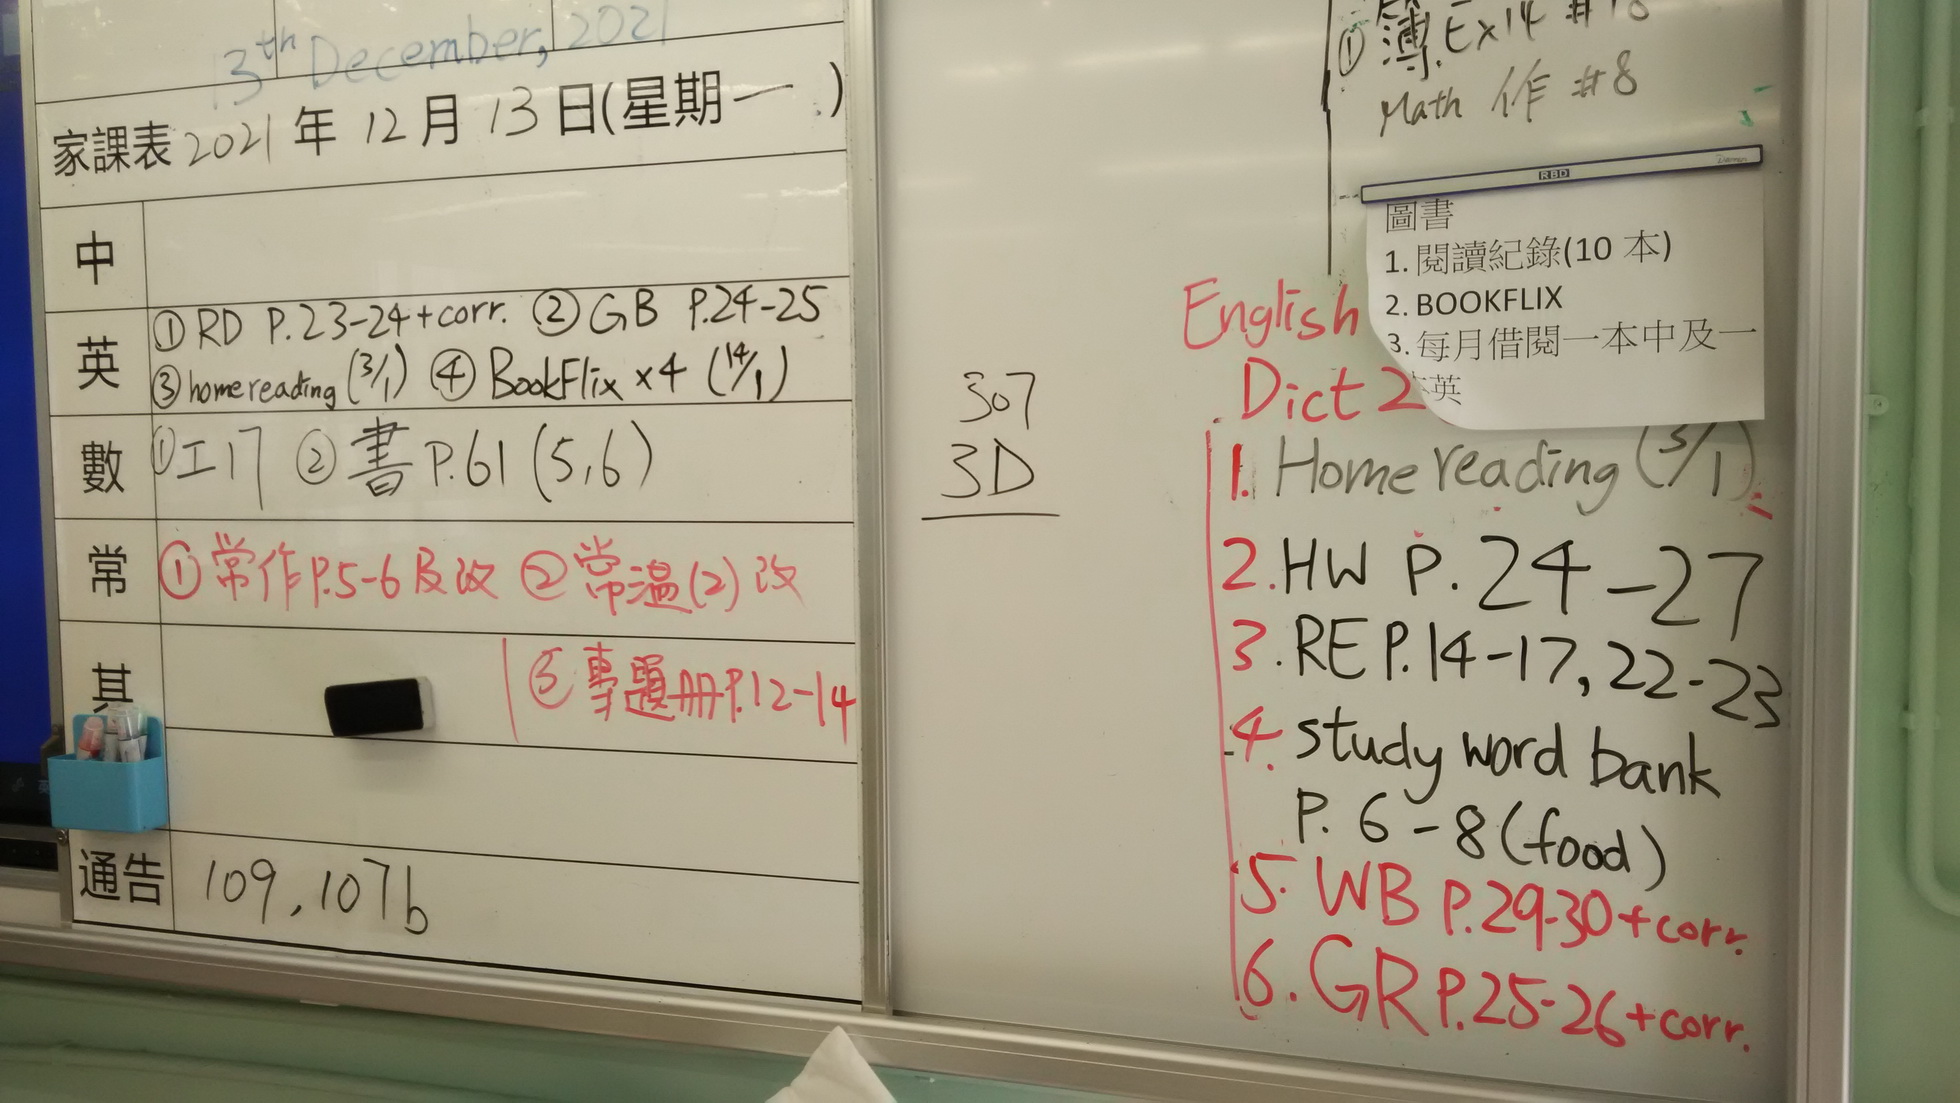 13th December, 2021
家課表 2021 年 12 月 13 日(星期一 )
中
英
① RD P.23-24+corr. ② GB P.24-25
③ homereading (3/1) ④ BookFlix ×4 (14/1)
數
① 工17 ② 書 P.61 (5,6)
常
① 常作P.5-6及改 ② 常溫(2)改
其
⑤ 專題冊P.12-14
通告
109, 107b
307
3D
① 簿.Ex14 #18
Math 作 #8
RBD
圖書
1. 閱讀紀錄(10 本)
2. BOOKFLIX
3. 每月借閱一本中及一
本英
English
Dict 2
1. Home reading (3/1)
2. HW P. 24-27
3. RE P.14-17, 22-23
4. study word bank
P. 6-8 (food)
5. WB P.29-30+corr.
6. GR P.25-26+corr.